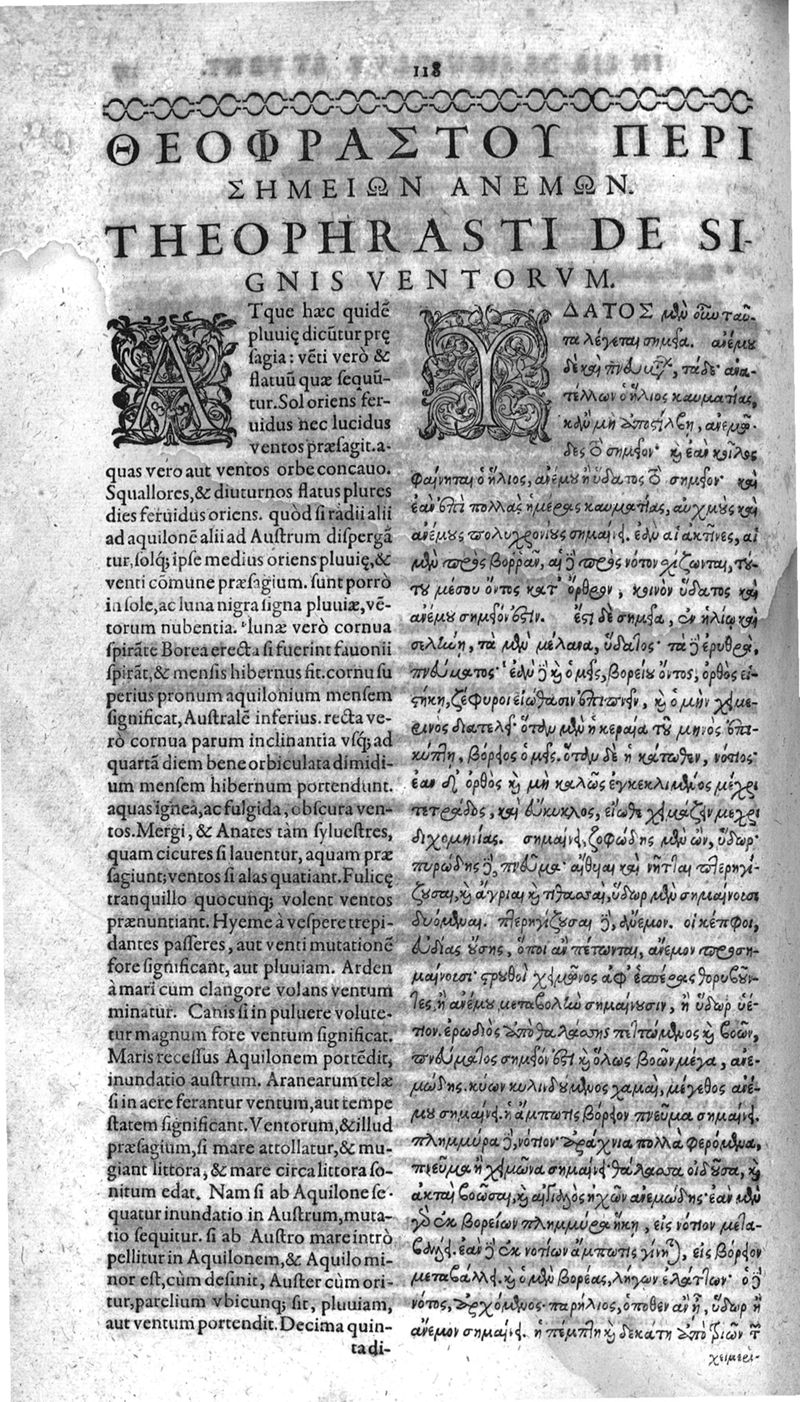 118
ΘΕΟΦΡΑΣΤΟΥ ΠΕΡΙ
ΣΗΜΕΙΩΝ ΑΝΕΜΩΝ.
THEOPHRASTI DE SI-
GNIS VENTORVM.
ATque hæc quidē
pluuię dicūtur prę
sagia: vēti verò &
flatuū quæ sequū-
tur. Sol oriens fer-
uidus nec lucidus
ventos præsagit. a-
quas vero aut ventos orbe concauo.
Squallores, & diuturnos flatus plures
dies feruidus oriens. quòd si radii alii
ad aquilonē alii ad Austrum dispergā
tur, solq; ipse medius oriens pluuię, &
venti cōmune præsagium. sunt porro
in sole, ac luna nigra signa pluuiæ, vē-
torum nubentia. lunæ verò cornua
spirāte Borea erecta si fuerint fauonii
spirāt, & mensis hibernus fit. cornu su
perius pronum aquilonium mensem
significat, Australē inferius. recta ve-
rò cornua parum inclinantia vsq; ad
quartā diem bene orbiculata dimidi-
um mensem hibernum portendunt.
aquas ignea, ac fulgida, obscura ven-
tos. Mergi, & Anates tàm syluestres,
quam cicures si lauentur, aquam præ
sagiunt; ventos si alas quatiant. Fulicę
tranquillo quocunq; volent ventos
prænuntiant. Hyeme à vespere trepi-
dantes passeres, aut venti mutationē
fore significant, aut pluuiam. Arden
à mari cum clangore volans ventum
minatur. Canis si in puluere volute-
tur magnum fore ventum significat.
Maris recessus Aquilonem portēdit,
inundatio austrum. Aranearum telæ
si in aere ferantur ventum, aut tempe
statem significant. Ventorum, & illud
præsagium, si mare attollatur, & mu-
giant littora, & mare circa littora so-
nitum edat. Nam si ab Aquilone se-
quatur inundatio in Austrum, muta-
tio sequitur. si ab Austro mare intrò
pellitur in Aquilonem, & Aquilo mi-
nor est, cùm desinit, Auster cùm ori-
tur, parelium vbicunq; sit, pluuiam,
aut ventum portendit. Decima quin-
ta di-
ΥΔΑΤΟΣ μὲν οὖν ταῦ-
τα λέγεται σημεῖα. ἀνέμου
δὲ καὶ πνευμάτων, τάδε· ἀνα-
τέλλων ὁ ἥλιος καυματίας,
κἂν μὴ ἀποστίλβῃ, ἀνεμῶ-
δες τὸ σημεῖον· καὶ ἐὰν κοῖλος
φαίνηται ὁ ἥλιος, ἀνέμου ἢ ὕδατος τὸ σημεῖον· καὶ
ἐὰν ἐπὶ πολλὰς ἡμέρας καυματίας, αὐχμοὺς καὶ
ἀνέμους πολυχρονίους σημαίνει. ἐὰν αἱ ἀκτῖνες, αἱ
μὲν πρὸς βορρᾶν, αἱ δὲ πρὸς νότον σχίζωνται, τού-
του μέσου ὄντος κατ' ὄρθρον, κοινὸν ὕδατος καὶ
ἀνέμου σημεῖόν ἐστιν. ἔστι δὲ σημεῖα, ἐν ἡλίῳ καὶ
σελήνῃ, τὰ μὲν μέλανα, ὕδατος· τὰ δὲ ἐρυθρὰ,
πνεύματος· ἐὰν δὲ καὶ ὁ μεὶς, βορείου ὄντος, ὀρθὸς εἱ-
στήκῃ, ζέφυροι εἰώθασιν ἐπιπνεῖν, καὶ ὁ μὴν χειμε-
ρινὸς διατελεῖ· ὅταν μὲν ἡ κεραία τοῦ μηνὸς ἐπι-
κύπτῃ, βόρειος ὁ μείς. ὅταν δὲ ἡ κάτωθεν, νότιος·
ἐὰν δ' ὀρθὸς καὶ μὴ καλῶς ἐγκεκλιμένος μέχρι
τετράδος, καὶ εὔκυκλος, εἴωθε χειμάζειν μέχρι
διχομηνίας. σημαίνει, ζοφώδης μὲν ὢν, ὕδωρ·
πυρώδης δὲ, πνεῦμα· αἴθυιαι καὶ νῆτται πτερυγί-
ζουσαι, καὶ ἄγριαι καὶ τιθασαὶ, ὕδωρ μὲν σημαίνουσι
δυόμεναι. πτερυγίζουσαι δὲ, ἄνεμον. οἱ κέπφοι,
εὐδίας οὔσης, ὅποι ἂν πέτωνται, ἄνεμον προση-
μαίνουσι· στρουθοὶ χειμῶνος ἀφ' ἑσπέρας θορυβοῦν-
τες, ἢ ἀνέμου μεταβολὴν σημαίνουσιν, ἢ ὕδωρ ὑέ-
τιον. ἐρωδιὸς ἀπὸ θαλάσσης πετόμενος καὶ βοῶν,
πνεύματος σημεῖόν ἐστι καὶ ὅλως βοῶν μέγα, ἀνε-
μώδης. κύων κυλινδούμενος χαμαὶ, μέγεθος ἀνέ-
μου σημαίνει. ἡ ἄμπωτις βόρειον πνεῦμα σημαίνει.
πλημμύρα δὲ, νότιον· ἀράχνια πολλὰ φερόμενα,
πνεῦμα ἢ χειμῶνα σημαίνει· θάλασσα οἰδοῦσα, καὶ
ἀκταὶ βοῶσαι, καὶ αἰγιαλὸς ἠχῶν ἀνεμώδης· ἐὰν μὲν
γὰρ ἐκ βορείων πλημμύρα ἥκῃ, εἰς νότιον μετα-
βάλλει. ἐὰν δὲ ἐκ νοτίων ἄμπωτις γίνηται, εἰς βόρειον
μεταβάλλει. καὶ ὁ μὲν βορέας, λήγων ἐλάττων· ὁ δὲ
νότος, ἀρχόμενος· παρήλιος, ὁπόθεν ἂν ᾖ, ὕδωρ ἢ
ἄνεμον σημαίνει. ἡ πέμπτη καὶ δεκάτη ἀπὸ τροπῶν τῶν
χειμερι-